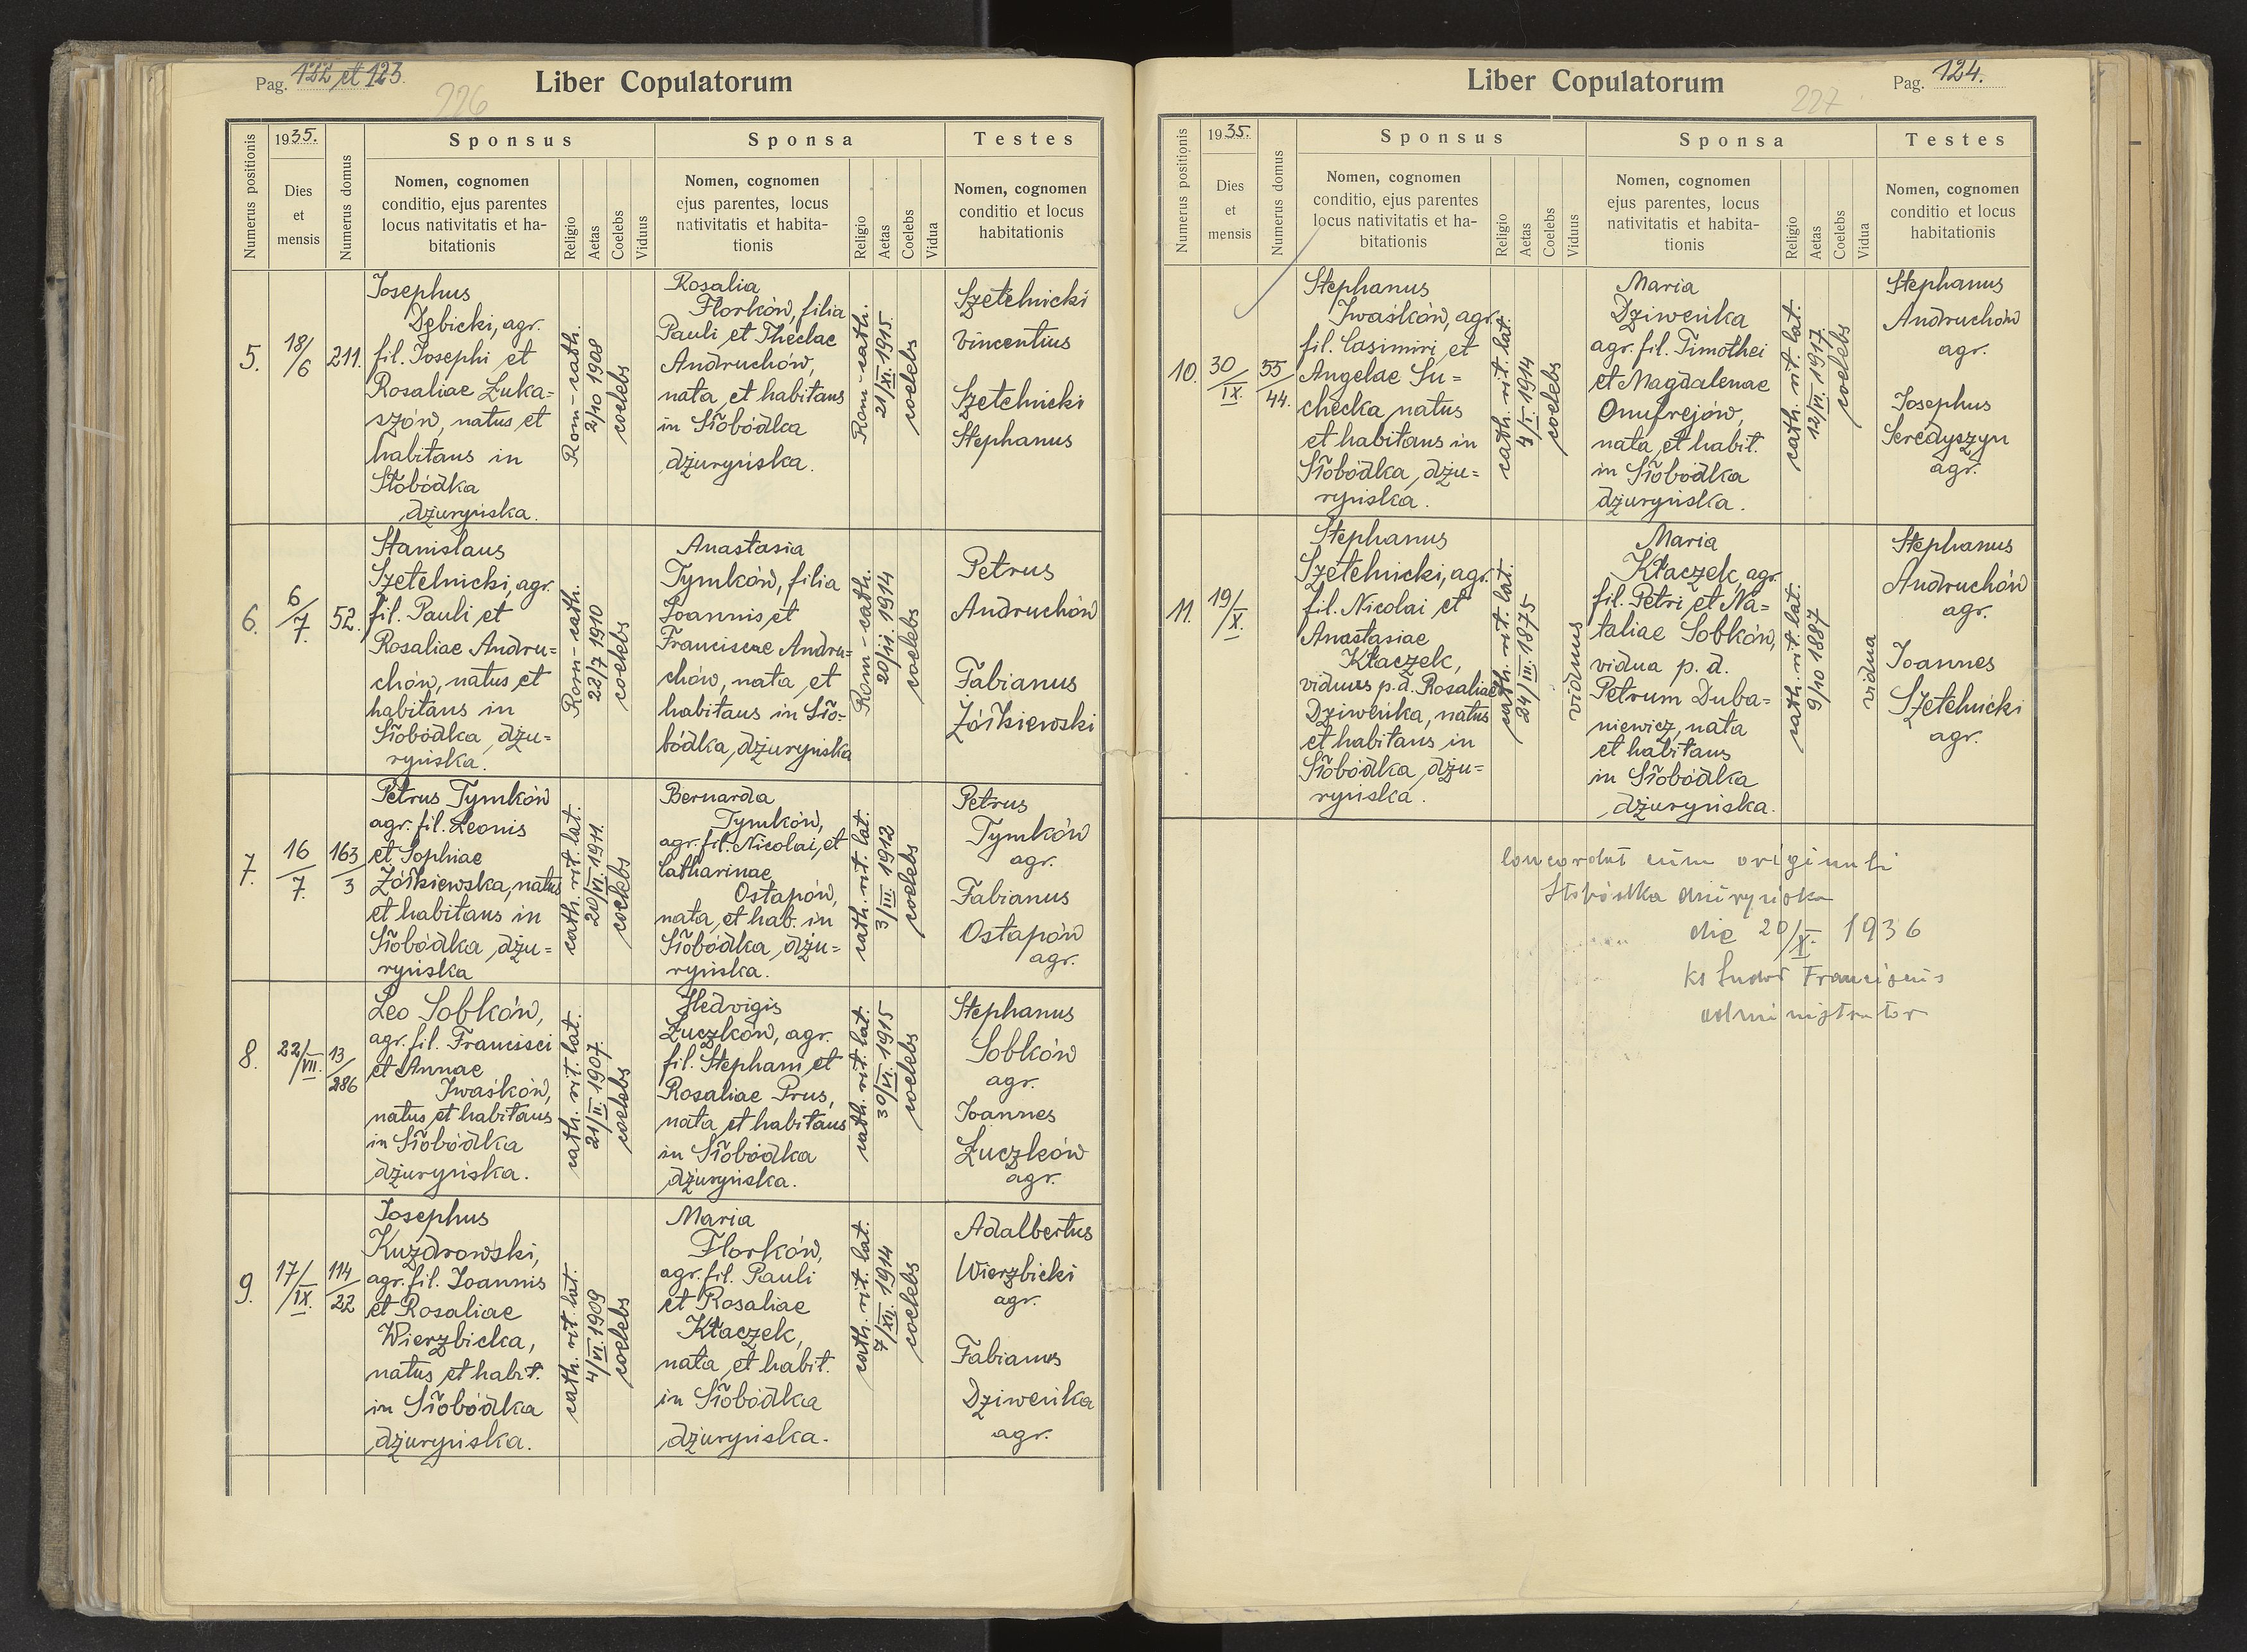 Pag. 122 et 123.
226
Liber Copulatorum
Numerus positionis
1935.
Dies
et
mensis
Numerus domus
Sponsus
Nomen, cognomen
conditio, ejus parentes
locus nativitatis et ha-
bitationis
Religio
Aetas
Coelebs
Viduus
Sponsa
Nomen, cognomen
ejus parentes, locus
nativitatis et habita-
tionis
Religio
Aetas
Coelebs
Vidua
Testes
Nomen, cognomen
conditio et locus
habitationis
5.
18/6
211.
Josephus
Dębicki, agr.
fil. Josephi et
Rosaliae Łuka=
szów, natus et
habitans in
Słobódka
dżuryńska.
Rom-cath.
2/10 1908
coelebs
Rosalia
Florków, filia
Pauli et Theclae
Andruchów,
nata et habitans
in Słobódka
dżuryńska.
Rom-cath.
21/XI. 1915.
coelebs
Szetelnicki
Vincentius
Szetelnicki
Stephanus
6.
6/7.
52.
Stanislaus
Szetelnicki, agr.
fil. Pauli et
Rosaliae Andru=
chów, natus et
habitans in
Słobódka dżu=
ryńska.
Rom-cath.
22/7 1910
coelebs
Anastasia
Tymków, filia
Joannis et
Franciscae Andru=
chów, nata et
habitans in Sło=
bódka dżuryńska
Rom-cath.
20/III. 1914
coelebs
Petrus
Andruchów
Fabianus
Żółkiewski
7.
16/7.
163/3
Petrus Tymków
agr. fil. Leonis
et Sophiae
Żółkiewska, natus
et habitans in
Słobódka dżu=
ryńska
cath. rit. lat.
20/VI. 1911.
coelebs
Bernarda
Tymków,
agr. fil. Nicolai, et
Catharinae
Ostapów,
nata et hab. in
Słobódka dżu=
ryńska.
cath. rit. lat.
3/III. 1912
coelebs
Petrus
Tymków
agr.
Fabianus
Ostapów
agr.
8.
22/VII.
13/286
Leo Sobków,
agr. fil. Francisci
et Annae
Iwaśków,
natus et habitans
in Słobódka
dżuryńska.
cath. rit. lat.
21/II. 1907.
coelebs
Hedvigis
Łuczków, agr.
fil. Stephani et
Rosaliae Prus,
nata et habitans
in Słobódka
dżuryńska.
cath. rit. lat.
30/VI. 1915
coelebs
Stephanus
Sobków
agr.
Joannes
Łuczków
agr.
9.
17/IX.
114/22
Josephus
Kuzdrowski,
agr. fil. Joannis
et Rosaliae
Wierzbicka,
natus et habit.
in Słobódka
dżuryńska.
cath. rit. lat.
4/VI. 1909
coelebs
Maria
Florków,
agr. fil. Pauli
et Rosaliae
Kłaczek,
nata et habit.
in Słobódka
dżuryńska.
cath. rit. lat.
7/XII. 1914
coelebs
Adalbertus
Wierzbicki
agr.
Fabianus
Dziweńka
agr.
Liber Copulatorum
227
Pag. 124.
Numerus positionis
1935.
Dies
et
mensis
Numerus domus
Sponsus
Nomen, cognomen
conditio, ejus parentes
locus nativitatis et ha-
bitationis
Religio
Aetas
Coelebs
Viduus
Sponsa
Nomen, cognomen
ejus parentes, locus
nativitatis et habita-
tionis
Religio
Aetas
Coelebs
Vidua
Testes
Nomen, cognomen
conditio et locus
habitationis
10.
30/IX.
55/44.
Stephanus
Iwaśków, agr.
fil. Casimiri et
Angelae Su=
checka natus
et habitans in
Słobódka dżu=
ryńska.
cath. rit. lat.
4/I. 1914
coelebs
Maria
Dziweńka
agr. fil. Timothei
et Magdalenae
Onufrejów,
nata et habit.
in Słobódka
dżuryńska.
cath. rit. lat.
12/VI. 1917.
coelebs
Stephanus
Andruchów
agr.
Josephus
Seredyszyn
agr.
11.
19/X.
Stephanus
Szetelnicki, agr.
fil. Nicolai et
Anastasiae
Kłaczek,
viduus p.d. Rosaliae
Dziweńka, natus
et habitans in
Słobódka dżu=
ryńska.
cath. rit. lat.
24/III. 1875
viduus
Maria
Kłaczek, agr.
fil. Petri et Na=
taliae Sobków,
vidua p. d.
Petrum Duba=
niewicz, nata
et habitans
in Słobódka
dżuryńska.
cath. rit. lat.
9/10 1887
vidua
Stephanus
Andruchów
agr.
Joannes
Szetelnicki
agr.
Concordat cum originali
Słobódka dżuryńska
die 20/X. 1936
ks Franciscus
administrator